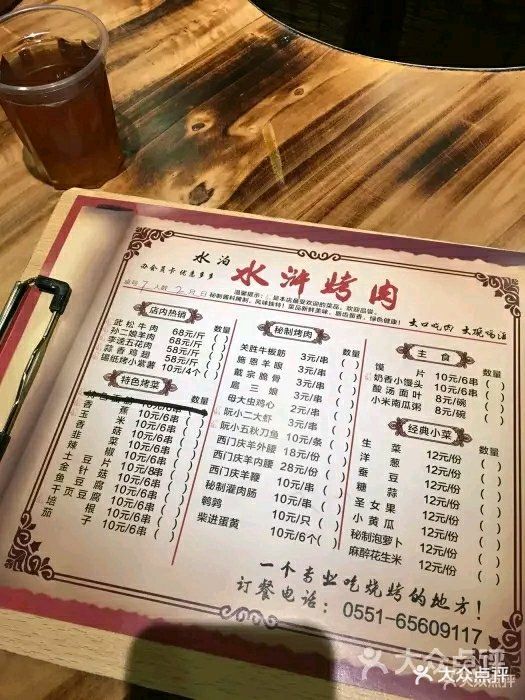 水泊
办会员卡优惠多多
水浒烤肉
桌号 7 人数 2 月 日
店内热销 数量
武松牛肉 68元/斤 ( )
孙二娘羊肉 68元/斤 ( )
李逵五花肉 58元/斤 ( )
蒜香鸡翅 58元/斤 ( )
锡纸烤小紫薯 10元/4个 ( )
特色烤菜 数量
10元/6串 ( )
香蕉 10元/6串 ( )
玉米 10元/6串 ( )
香菇 10元/6串 ( )
韭菜 10元/6串 ( )
辣椒 10元/6串 ( )
土豆片 10元/6串
金针菇
鱼豆腐
干豆腐
培根
茄子
秘制烤肉 数量
关胜牛板筋 3元/串 ( )
施恩羊眼 3元/串 ( )
戴宗脆骨 3元/串 ( )
扈三娘 3元/串 ( )
母大虫鸡心 2元/串 ( )
阮小二大虾 3元/串 ( )
阮小五秋刀鱼 10元/条 ( )
西门庆羊外腰 18元/份 ( )
西门庆羊内腰 28元/份 ( )
西门庆羊鞭 10元/串 ( )
秘制灌肉肠 10元/串 ( )
鹌鹑 10元/只 ( )
柴进蛋黄 10元/6个 ( )
大口吃肉 大碗喝酒
主食 数量
馍片 10元/6串 ( )
奶香小馒头 10元/6串 ( )
酸汤面叶 8元/碗 ( )
小米南瓜粥 8元/碗 ( )
经典小菜 数量
生菜 12元/份 ( )
洋葱 12元/份 ( )
蚕豆 12元/份 ( )
糖蒜 12元/份 ( )
圣女果 12元/份 ( )
小黄瓜 12元/份 ( )
秘制泡萝卜 12元/份 ( )
麻醉花生米 12元/份 ( )
一个专业吃烧烤的地方!
订餐电话：0551-65609117
大众点评
大众点评